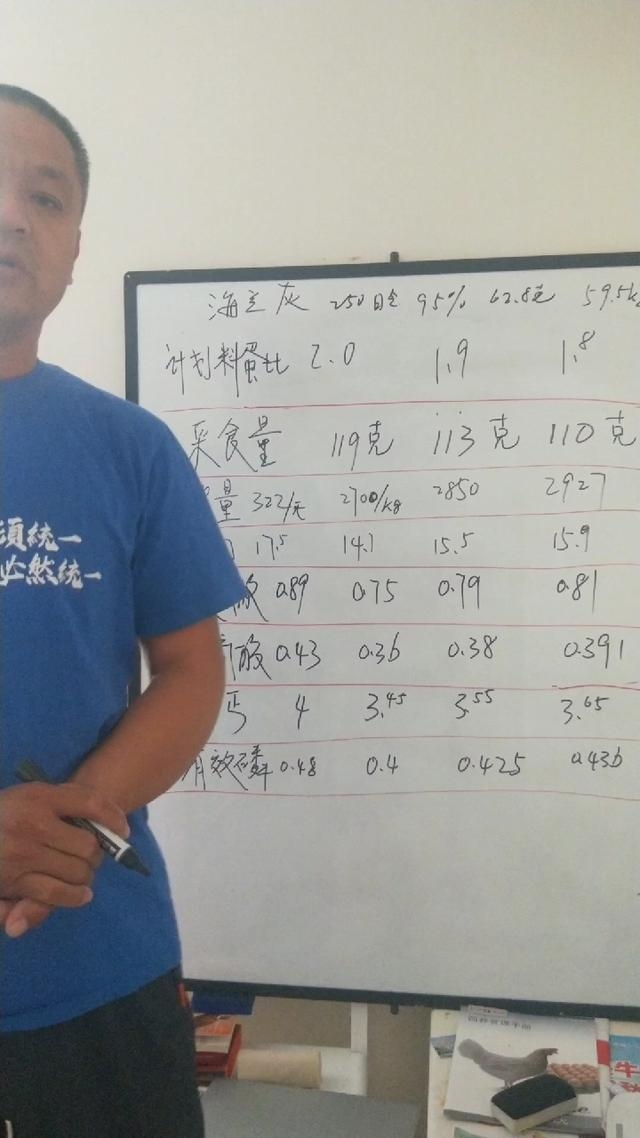 海兰灰 250日令 95% 62.8克 59.5k
计划料蛋比 2.0 1.9 1.8
采食量 119克 113克 110克
量 322/天 2700/kg 2850 2927
17.5 14.7 15.5 15.9
酸 0.89 0.75 0.79 0.81
酸 0.43 0.36 0.38 0.391
钙 4 3.45 3.55 3.65
有效磷 0.48 0.4 0.425 0.436
須統一
必然統一